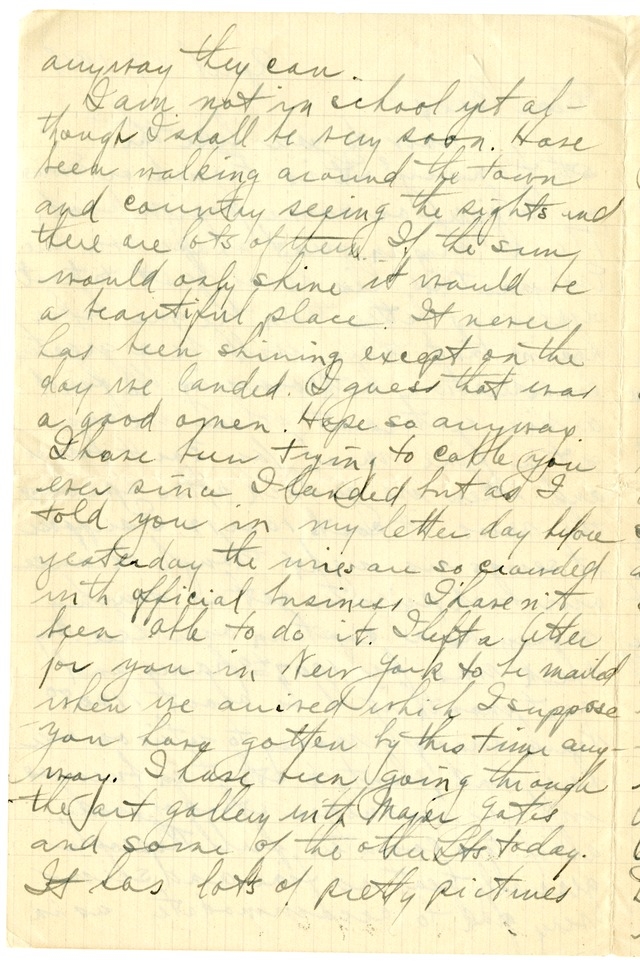 anyway they can.
I am not in school yet al-
though I shall be very soon. Have
been walking around the town
and country seeing the sights and
there are lots of them. If the sun
would only shine it would be
a beautiful place. It never
has been shining except on the
day we landed. I guess that was
a good omen. Hope so anyway
I have been trying to cable you
ever since I landed but as I
told you in my letter day before
yesterday the wires are so crowded
with official business I haven't
been able to do it. I left a letter
for you in New York to be mailed
when we arrived which I suppose
you have gotten by this time any-
way. I have been going through
the art gallery with Major Gates
and some of the other Lts today.
It has lots of pretty pictures